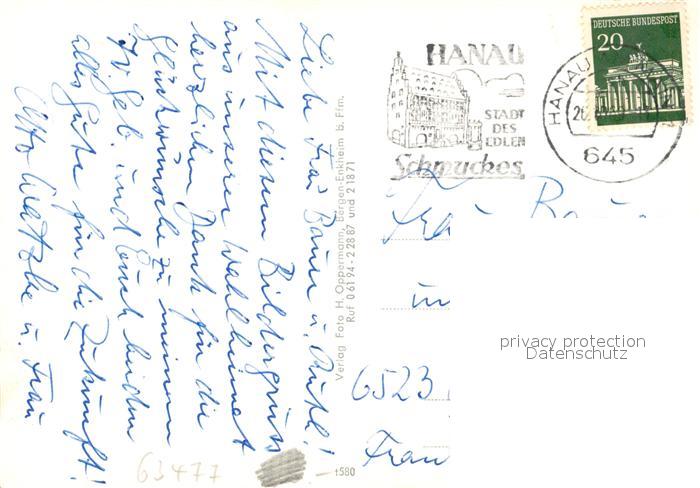 Liebe Frau Bauer u. Ruhl!
Mit diesem Bildergruss
aus unserer Wahlheimat
herzlichen Dank für die
Glückwünsche zu meinem
Geb. und Euch beiden
alles Gute für die Zukunft!
Otto Watzke u. Frau
Verlag Foto H. Oppermann, Bergen-Enkheim b. Ffm.
Ruf 0 61 94 - 2 28 87 und 2 18 71
1580
63477
HANAU
STADT
DES
EDLEN
Schmuckes
HANAU
20
645
DEUTSCHE BUNDESPOST
20
in
6523
privacy protection
Datenschutz